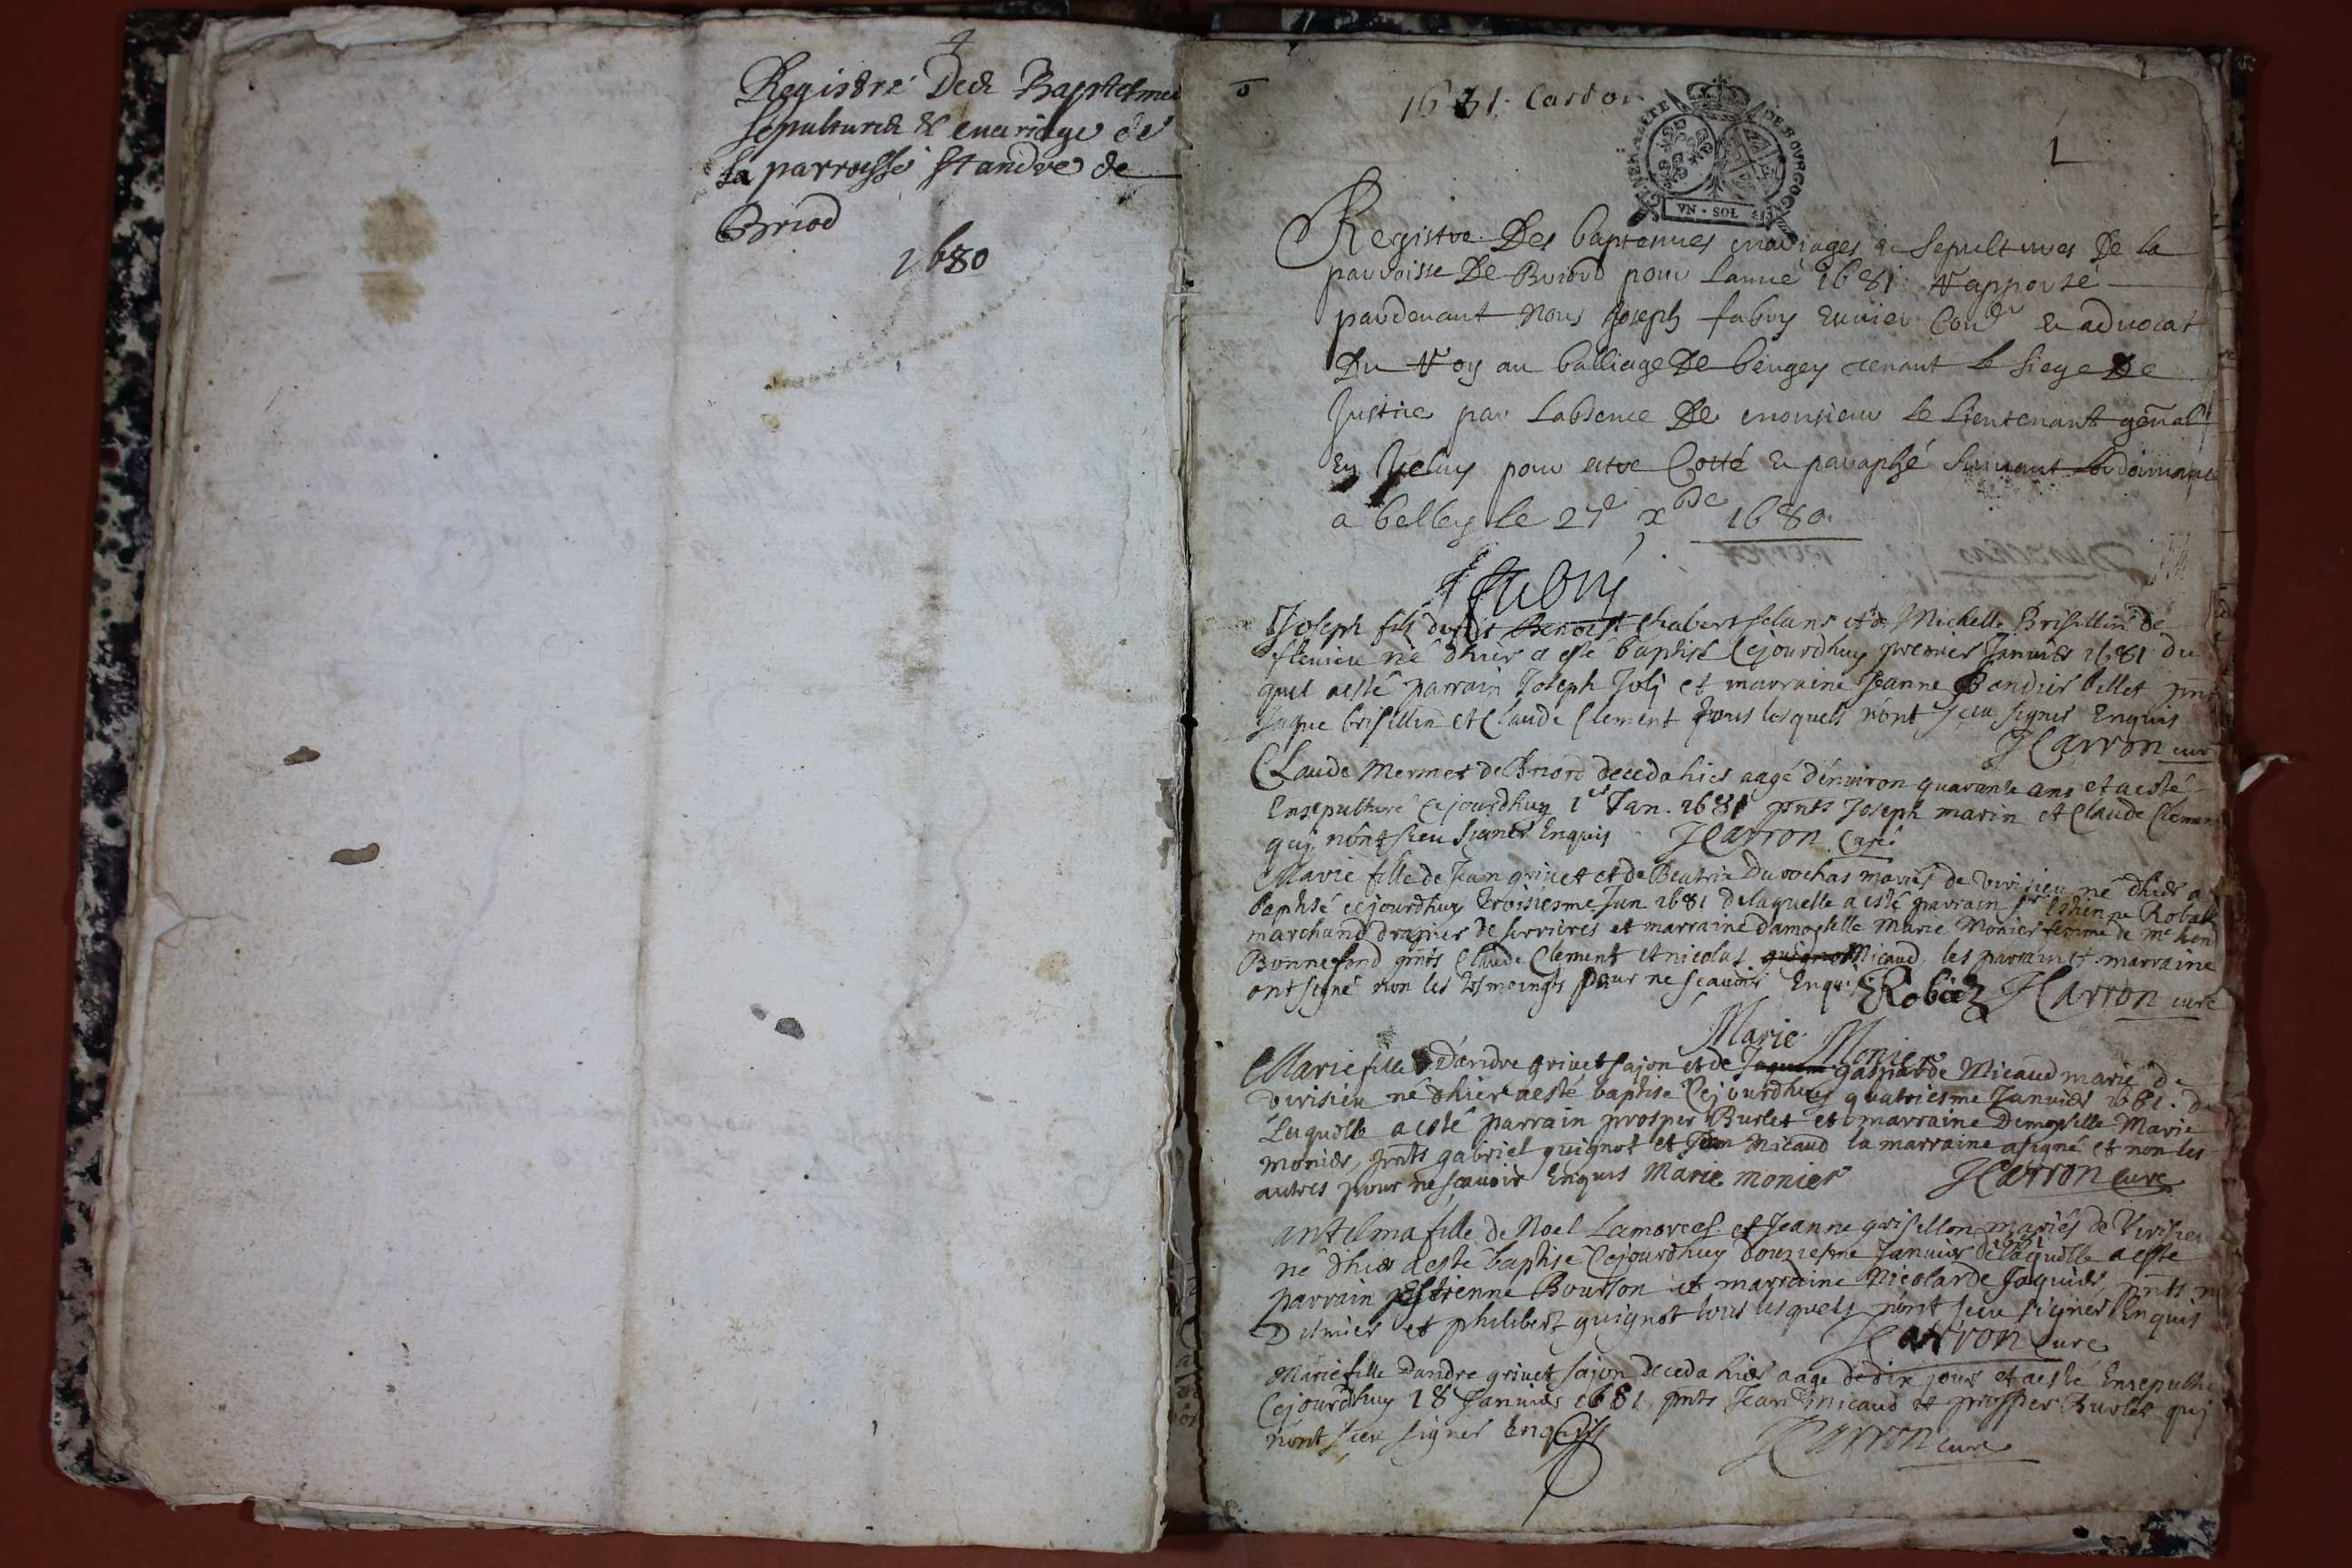 Registre Des Baptesmes
sepultures & mariage de
la parroisse St andre de
Briod
1680
1681. Cardon
1
GENERALITE DE BOVRGOGNE
VN · SOL
Registre Des baptemes mariages & sepultures De la
parroisse De Briord pour lannee 1681 rapporté
pardevant Nous Joseph fabry Cons.er & advocat
Du Roy au balliage De beugey tenant le siege De
Justice par labsence De monsieur le lieutenant gen̄al
En Iceluy pour estre Cotté & paraphé suivant lordonnance
a belley le 27e xbre 1680.
Fabry
Joseph fils de Benoist Chabert et de Michelle Brisillin de
né dhier a esté baptisé Cejourdhuy premier Januier 1681 du
quel a esté parrain Joseph Joly et marraine Jeanne Bandier billet pnts
Jaque brisillin et Claude Clement tous lesquels n'ont sceu signer Enquis
JCarron cure
Claude Mermet de Briord deceda hier aagé d'enuiron quarante ans et a esté
Ensepulturé Cejourdhuy 1er Jan. 1681 pnts Joseph marin et Claude Clement
quj n'ont sceu signer Enquis JCarron Curé
Marie fille de Jean griuet et de Beatrix Durochas mariés de Virisieu né dhier a
baptisé cejourdhuy troisiesme Jan 1681 delaquelle a esté parrain Sr Estienne Robat
marchand drapier de serrieres et marraine damoyselle Marie Monier femme de Me
Bonnefond pnts Claude Clement et nicolas guignot Micaud, les parrain et marraine
ont signé non les tesmoings pour ne scauoir Enquis Robat JCarron curé
Marie Monier
Marie fille D'andre griuet sajon et de Jaquem gasparde Micaud marié de
virisieu né dhier a esté baptisé Cejourdhuy quatriesme Januier 1681. de
Laquelle a esté parrain prosper Burlet et marraine Demoyselle Marie
monier, pnts gabriel guignot et Jean Micaud la marraine a signé et non les
autres pour ne scauoir Enquis Marie monier JCarron Curé
antelma fille de Noel Lamorces et Jeanne grisillon mariés de Virisieu
né dhier a esté baptisé Cejourdhuy douziesme Januier 1681 de laquelle a esté
parrain Estienne Bourson et marraine Nicolarde Jaquier, pnts
Dismier et philibert guignot tous lesquels n'ont sceu signer Enquis
JCarron Curé
Marie fille Dandre griuet sajon deceda hier aage de dix jours et a esté Ensepultu
Cejourdhuy 18 Januier 1681, pnts Jean micaud et prosper Burlet quj
n'ont sceu signer Enquis JCarron curé